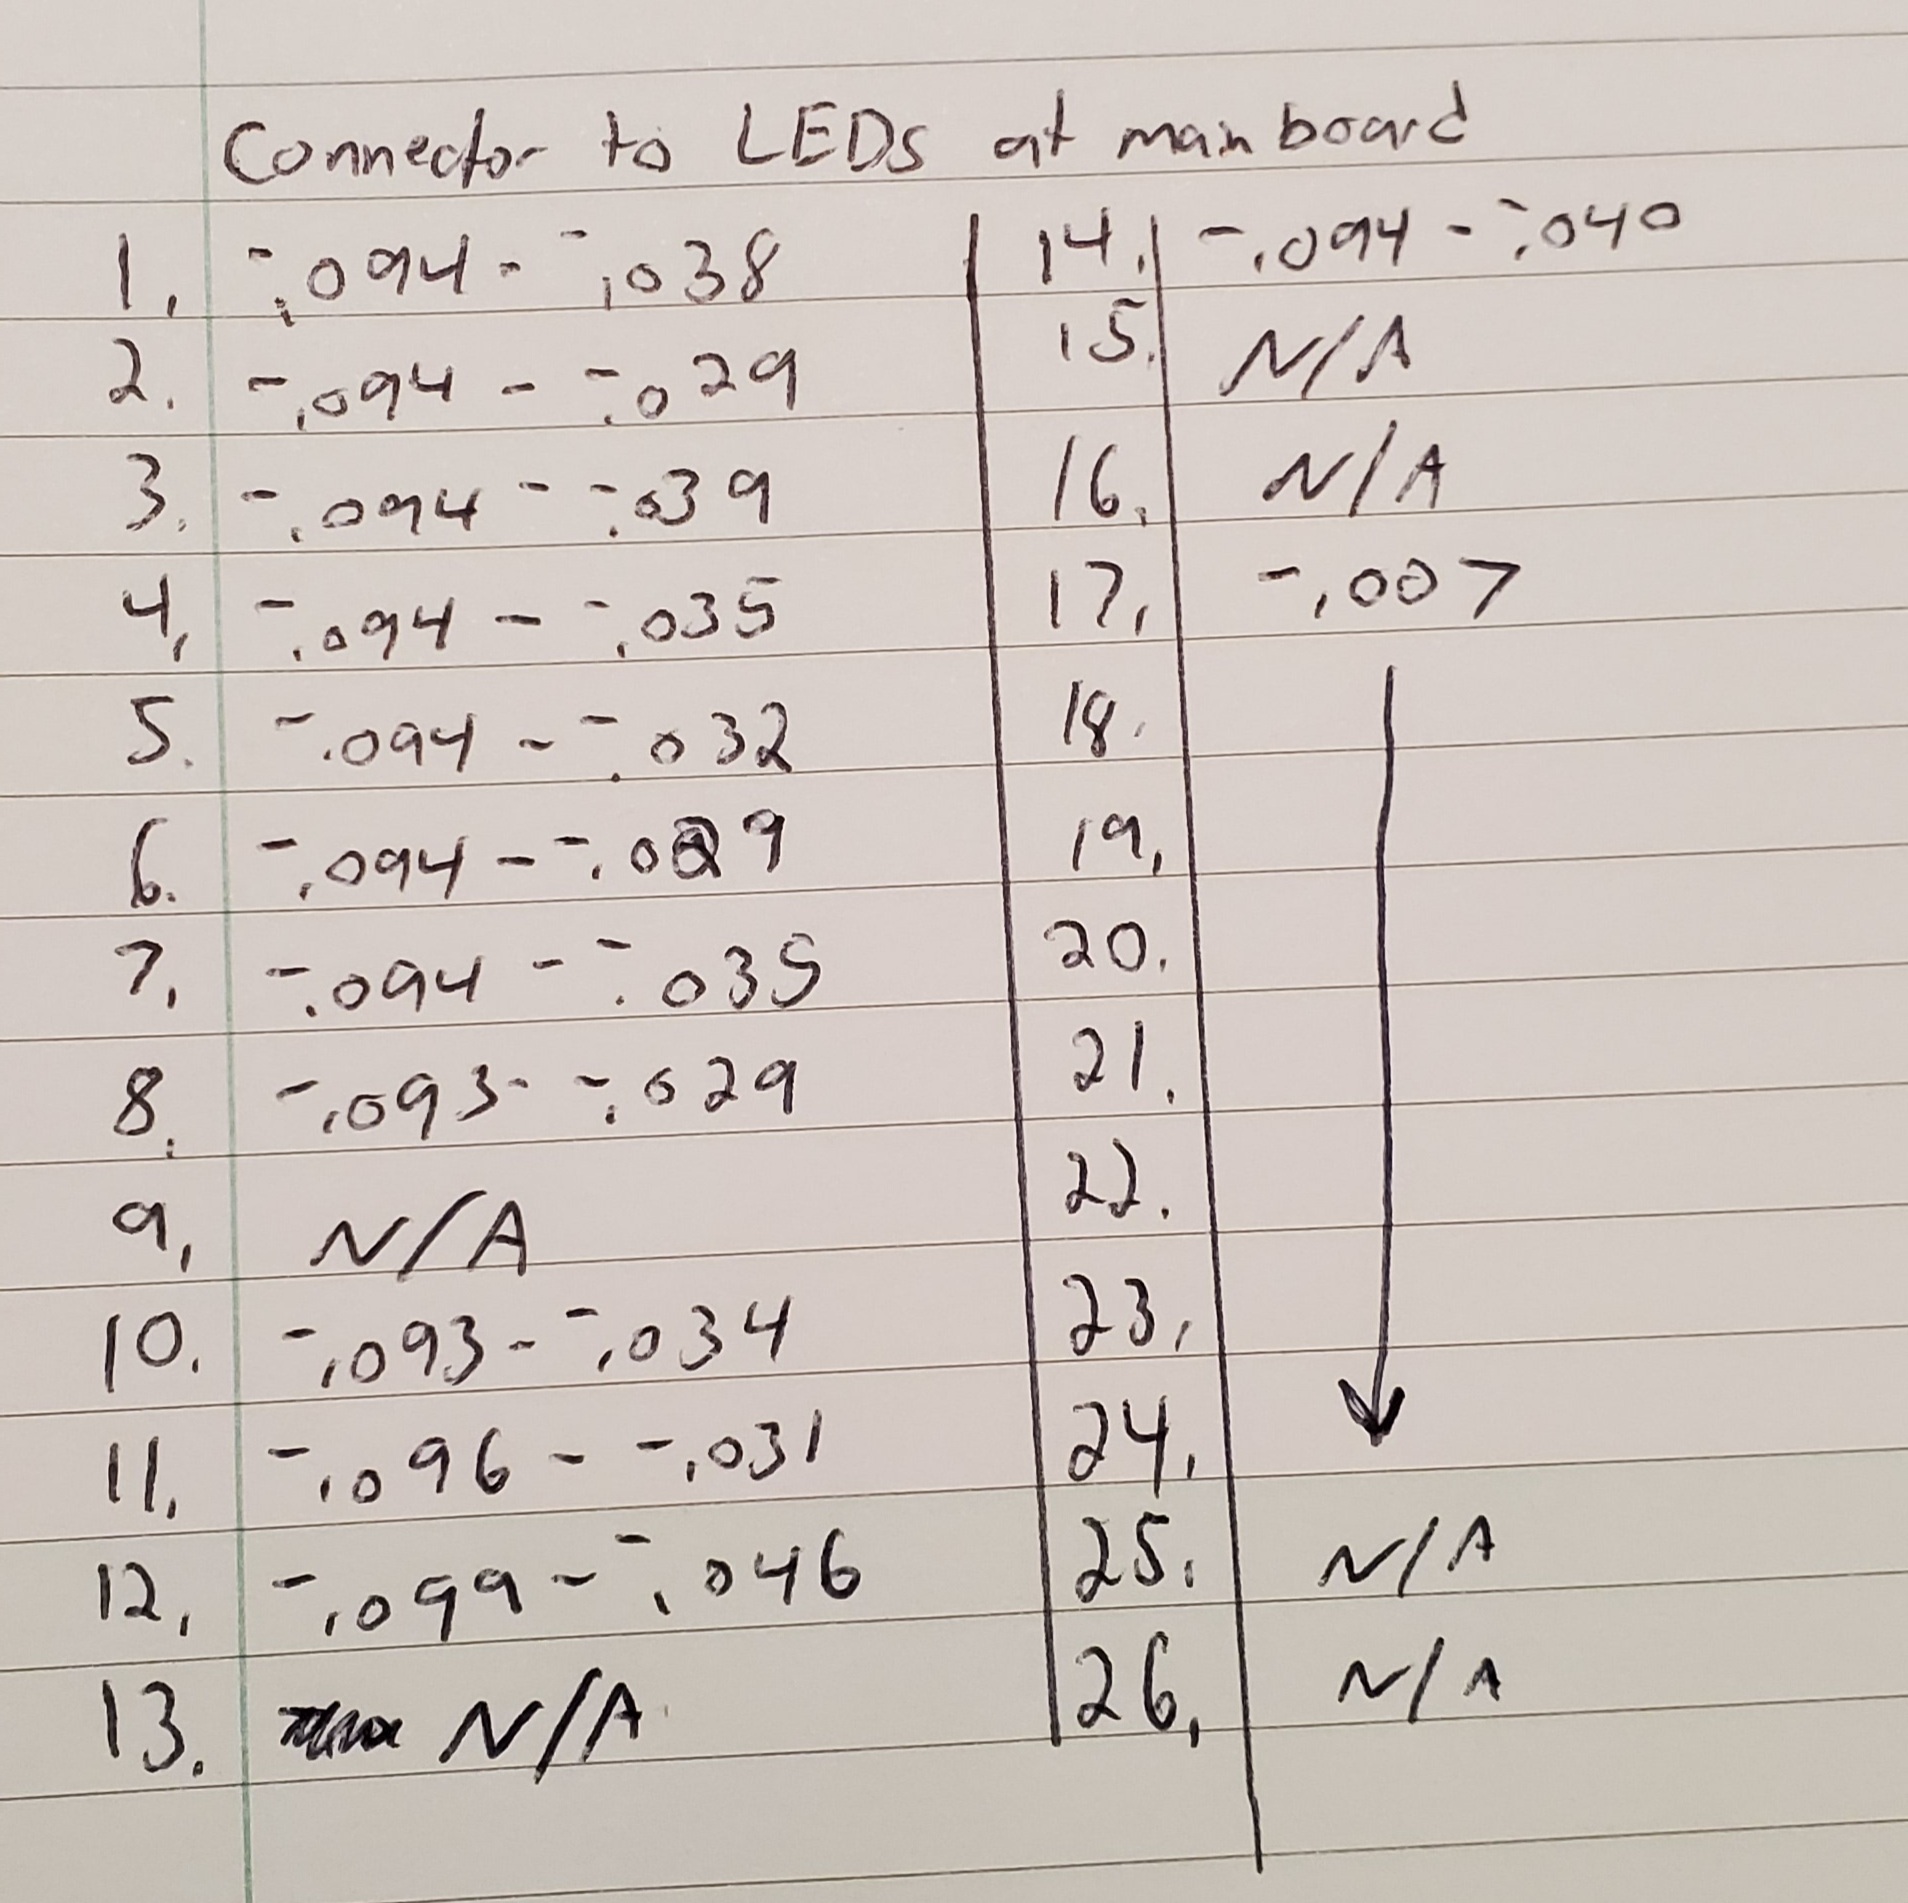 Connector to LEDs at mainboard
1. -.094 - -.038
2. -.094 - -.029
3. -.094 - -.039
4. -.094 - -.035
5. -.094 - -.032
6. -.094 - -.029
7. -.094 - -.035
8. -.093 - -.029
9. N/A
10. -.093 - -.034
11. -.096 - -.031
12. -.099 - -.046
13. N/A
14. -.094 - -.040
15. N/A
16. N/A
17. -.007
18.
19.
20.
21.
22.
23.
24.
25. N/A
26. N/A